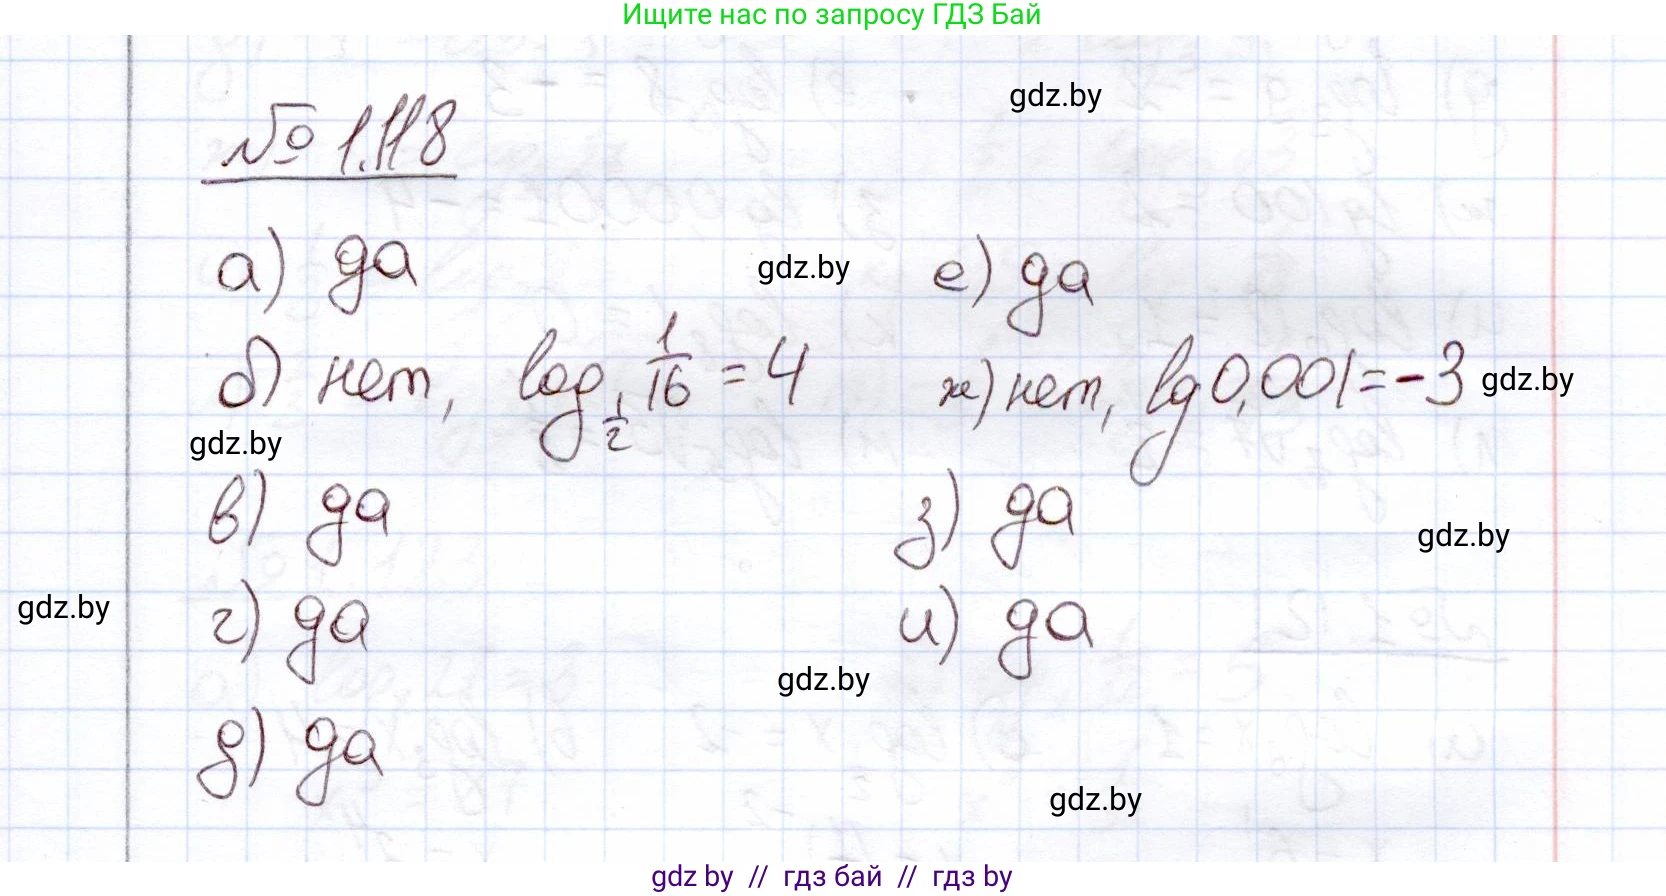 Ищите нас по запросу ГДЗ Бай
№ 1.118
gdz.by
а) да
gdz.by
е) да
б) нет, log_{1/2} 1/16 = 4
ж) нет, lg 0,001 = -3
gdz.by
gdz.by
в) да
з) да
gdz.by
gdz.by
г) да
и) да
gdz.by
д) да
gdz.by
gdz by // гдз бай // гдз by